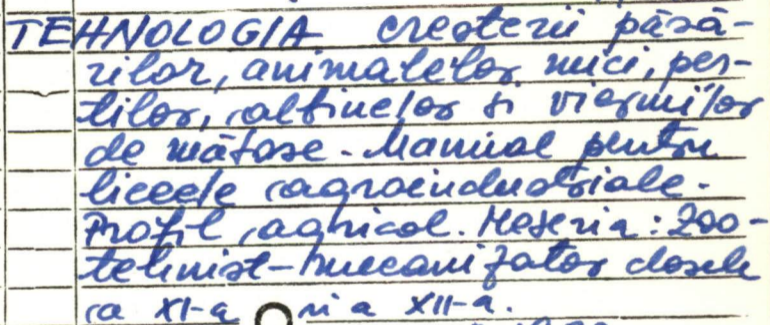 TEHNOLOGIA creșterii păsă-
rilor, animalelor mici, peș-
tilor, albinelor și viermilor
de mătase. Manual pentru
liceele agroindustriale.
Profil agricol. Meseria: Zoo-
tehnist-mecanizator clasele
a XI-a și a XII-a.